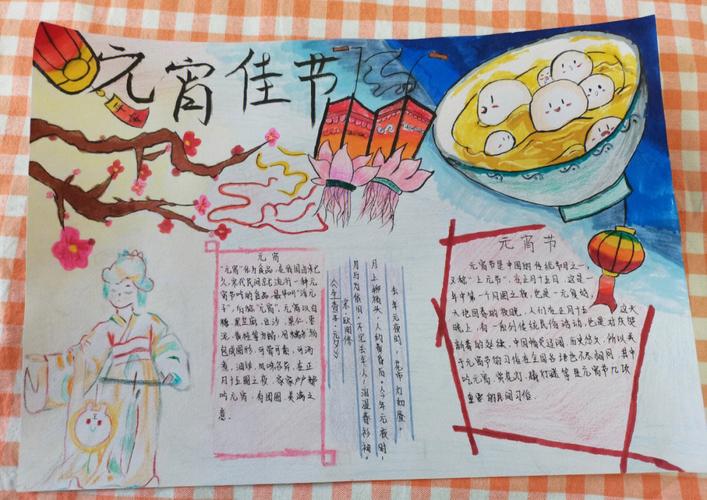 元宵佳节
元宵
"元宵"作为食品,在我国由来已
久。宋代民间即流行一种元
宵节吃的食品。最早叫"浮元
子",后称"元宵",元宵以白
糖、黑芝麻、豆沙、果仁、枣
泥、黄桂等为馅,用糯米粉
包成圆形,可荤可素,可汤
煮、油炸、风味各异。在正
月十五圆之夜,家家户户都
吃元宵,有团圆美满之
意。
去年元夜时,花市灯如昼。
月上柳梢头,人约黄昏后。今年元夜时,
月与灯依旧。不见去年人,泪湿春衫袖。
宋·欧阳修
《生查子·元夕》
元宵节
元宵节是中国的传统节日之一,
又称"上元节"。在正月十五日,这是一
年中第一个月圆之夜,也是一元复始,
大地回春的夜晚。人们在正月十五
晚上,有一系列传统民俗活动,也是对庆贺
新春的延续。中国幅员辽阔,历史悠久,所以关
于元宵节的习俗在全国各地也不尽相同,其中
吃元宵、赏花灯、猜灯谜等是元宵节几项
重要的民间习俗。